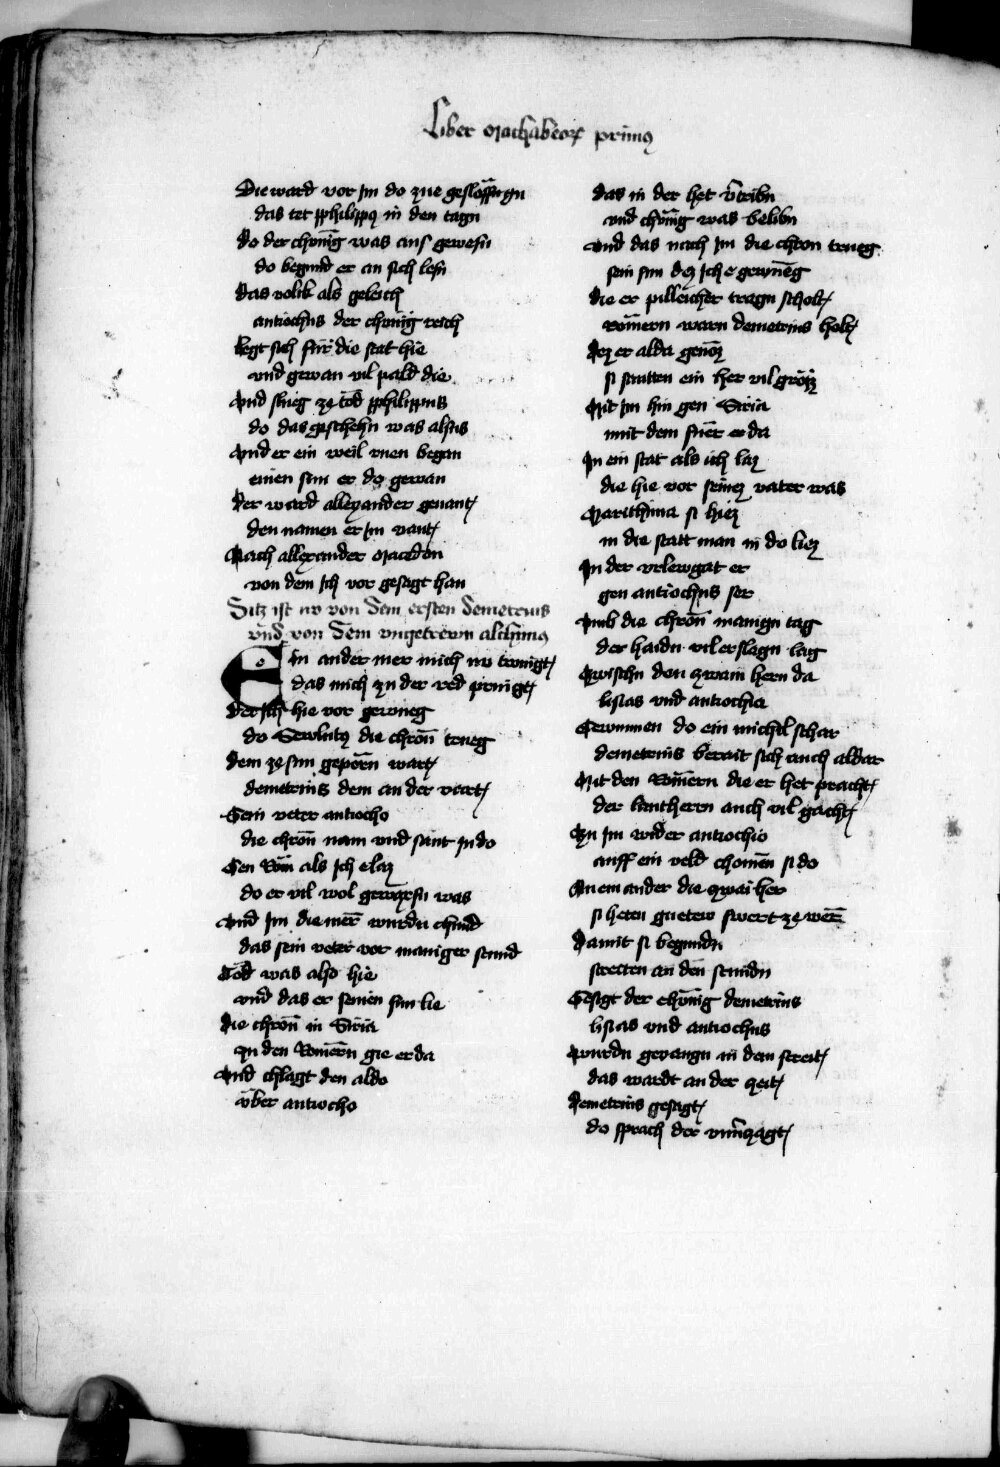 Liber Machabeorum primus
Die ward vor im do zue geslossngn
das tet philippus in den tagn
do der chünig was auf gewesn
do begund er an sich lesn
das volik als geleich
antiochus der chünig reich
legt sich für die stat hie
vnd gewan vil pald die
Vnd slueg ze tod philippus
do das geschehn was alsus
Vnd er ein weil vnen began
einen sun er do gewan
Der ward allexander genant
den namen er im vant
Nach allexander Macedon
von dem ich vor gesagt han
Ditz ist nv von dem ersten demetrius
vnd von dem vngetrewn alchimus
Ein ander mer mich nv twingt
das mich zu der red pringt
Der ich hie vor gewueg
do Seleucus die chron trueg
Dem ze sun geporn wart
demetrius dem an der vart
Sein veter antiocho
die chron nam vnd sant in do
Gen Rom als ich e laz
do er vil wol gewaxsn was
Vnd im die mer wurdn chund
das sein veter vor maniger stund
Tod was also hie
vnd das er seinen sun lie
Die chron in Siria
Zu den Romern gie er da
Vnd chlagt den aldo
über antiocho
das in der het vertribn
vnd chünig was belibn
Vnd das nach im die chron trueg
sein sun dez ich e gewueg
die er pilleicher tragn scholt
romern warn demetrius holt
Dez er alda genoz
si santten ein her vil groz
Mit im hin gen Siria
mit dem fuer er da
In ein stat als ich laz
die hie vor seinez vater was
Marithima si hiez
in die statt man in do liez
In der vrlewgat er
gen antiochus ser
Vmb die chron manign tag
der haidn vil erslagn lag
Zwischn den zwain hern da
lisias vnd antiochia
Gewunnen do ein michel schar
demetrius berait sich auch aldar
Mit den Römern die er het pracht
der lantherrn auch vil gacht
Zu im wider antiochio
auff ein veld chomen si do
An einander die zwai her
si heten guetew swert ze wer
Damit si begundn
streiten an den stundn
Gesigt der chünig demetrius
lisias vnd antiochus
Wurdn gevangn in dem streit
das wardt an der zeit
Demetrius gesagt
do sprach der vnuerzagt